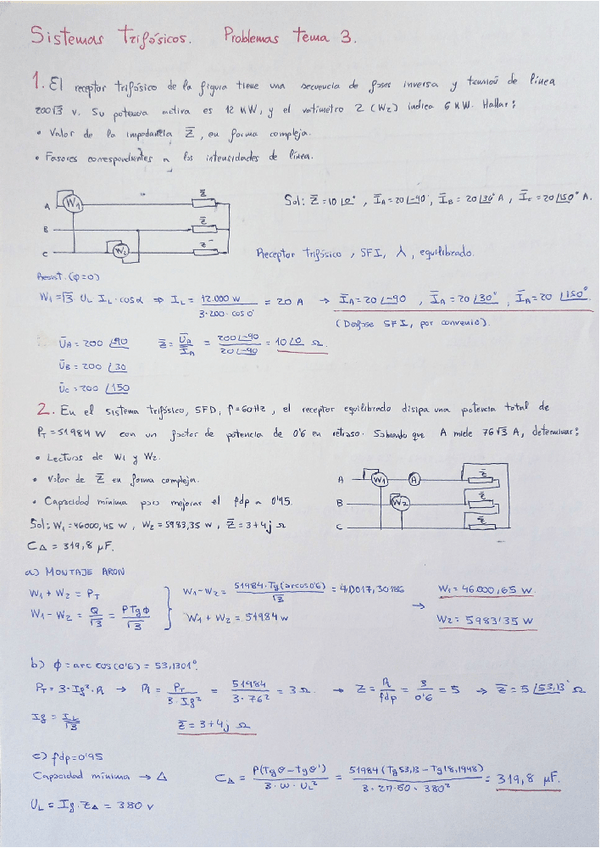 Sistemas trifásicos. Problemas tema 3.
1. El receptor trifásico de la figura tiene una secuencia de fases inversa y tensión de línea
200√3 V. Su potencia activa es 12 KW, y el vatímetro 2 (W₂) indica 6 KW. Hallar:
• Valor de la impedancia Z̅, en forma compleja.
• Fasores correspondientes a las intensidades de línea.
A W₁ Z̅
B Z̅
C W₂ Z̅
Sol: Z̅ = 10 ∠0°, I̅A = 20 ∠-90, I̅B = 20 ∠30° A, I̅c = 20 ∠150° A.
Receptor trifásico, SFI, ⅄, equilibrado.
Resist. (φ=0)
W₁ = √3 UL IL · cosα ⇒ IL = 12.000 W / 3·200·cos 0° = 20 A → I̅A = 20 ∠-90, I̅A = 20 ∠30°, I̅A = 20 ∠150°
(Desfase SFI, por convenio).
U̅A = 200 ∠90 Z̅ = U̅a / I̅A = 200∠-90 / 20∠-90 = 10∠0 Ω.
U̅B = 200 ∠30
U̅c = 200 ∠150
2. En el sistema trifásico, SFD, f=60Hz, el receptor equilibrado disipa una potencia total de
PT = 51984 W con un factor de potencia de 0'6 en retraso. Sabiendo que A mide 76√3 A, determinar:
• Lecturas de W₁ y W₂.
• Valor de Z̅ en forma compleja.
• Capacidad mínima para mejorar el fdp a 0'95.
Sol: W₁ = 46000,45 W, W₂ = 5983,35 W, Z̅ = 3+4j Ω
C△ = 319,8 μF.
A W₁ A Z̅
B W₂ Z̅
C Z̅
a) MONTAJE ARON
W₁ + W₂ = PT
W₁ - W₂ = Q/√3 = P Tg φ/√3
W₁-W₂ = 51984·Tg(arcos0'6)/√3 = 40017,30186
W₁ + W₂ = 51984 W
→ W₁ = 46.000,65 W.
W₂ = 5983'35 W
b) φ = arc cos (0'6) = 53,1301°.
PT = 3·Ig²·R → R = PT / 3·Ig² = 51984 / 3·76² = 3 Ω → Z = R / fdp = 3 / 0'6 = 5 → Z̅ = 5 ∠53,13° Ω
Ig = IL/√3 Z̅ = 3+4j Ω
c) fdp = 0'95
Capacidad mínima → △ C△ = P(Tgθ - Tgθ') / 3·W·UL² = 51984 (Tg 53,13 - Tg 18,1948) / 3·2π·60·380² = 319,8 μF.
UL = Ig · Z△ = 380 V